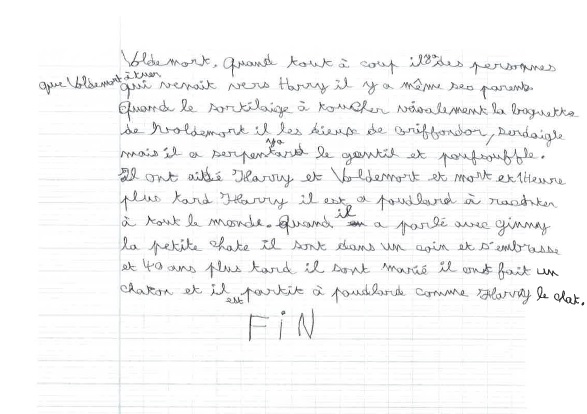 Voldemort. Quand tout à coup il y a des personnes
que Voldemort à tuer
qui venait vers Harry il y a même ses parents
Quand le sortilaige à toucher violement la baguette
de Wvoldemort il les sieux de Griffondor, serdaigle
mais il y a serpentard le gentil et poufsouffle.
Il ont aidé Harry et Voldemort et mort et 1 heure
plus tard Harry il est a poudlard à raconter
à tout le monde. Quand il a parlé avec ginny
la petite chate il sont dans un coin et s'embrasse
et 40 ans plus tard il sont marié il ont fait un
chaton et il est partit à poudlard comme Harry le chat.
FiN